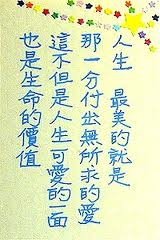 人生 最美的就是
那一分付出無所求的愛
這不但是人生可愛的一面
也是生命的價值